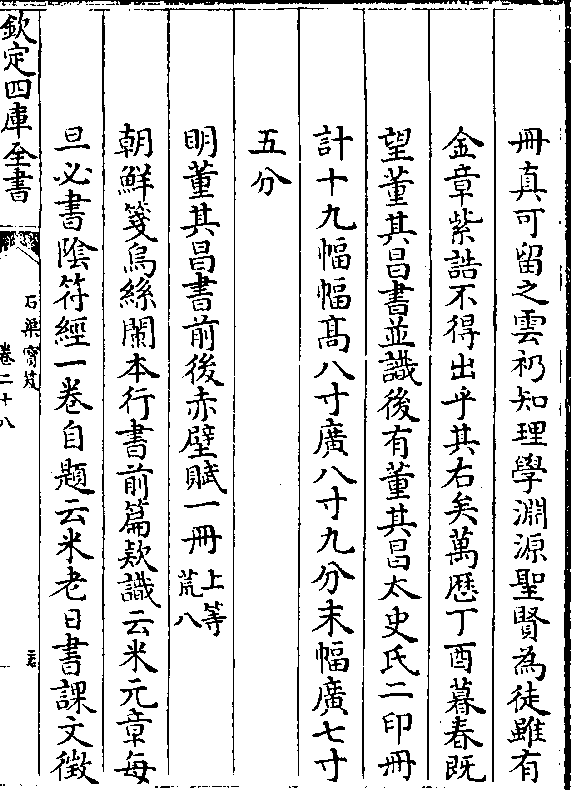 冊真可留之雲礽知理學淵源聖賢為徒雖有
金章紫誥不得出乎其右矣萬歴丁酉暮春既
望董其昌書並識後有董其昌太史氏二印冊
計十九幅幅髙八寸廣八寸九分末幅廣七寸
五分
明董其昌書前後赤壁賦一冊上等荒八
朝鮮箋烏絲闌本行書前篇欵識云米元章每
旦必書陰符經一卷自題云米老日書課文徴
欽定四庫全書
石渠寶笈
卷二十八